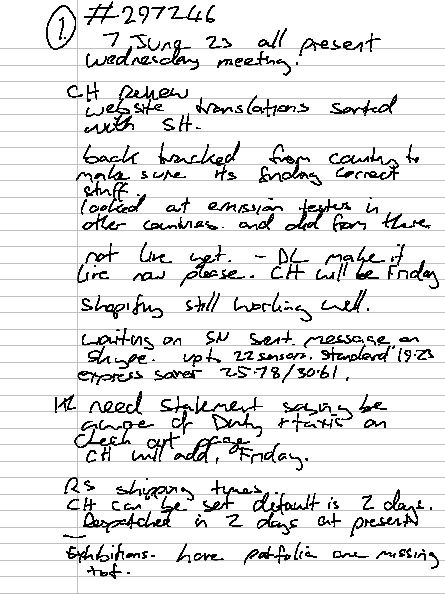 ① #297246
7 June 23 all present
Wednesday meeting.
CH Review
website translations sorted
with SH.
back tracked from country to
make sure its finding correct
stuff.
looked at emission testers in
other countries. and did from there
not live yet. - DL make it
live now please. CH will be Friday
Shopifuy still working well.
waiting on SN sent message on
Skype. up to 22 sensors. Standard 19.23
express saver 25.78/30.61.
need statement saying be
aware of Duty + taxis on
check out page
CH will add, Friday.
RS shipping times
CH can be set default is 2 days.
Despatched in 2 days at present
Exhibitions. have portfolio one missing